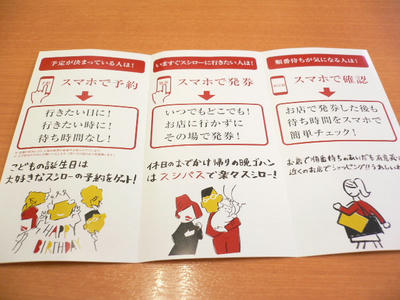 予定が決まっている人は!
スマホで予約
行きたい日に!
行きたい時に!
待ち時間なし!
こどもの誕生日は
大好きなスシローの予約をゲット!
HAPPY
BIRTHDAY
いますぐスシローに行きたい人は!
スマホで発券
いつでもどこでも!
お店に行かずに
その場で発券!
休日のおでかけ帰りの晩ゴハン
はスシパスで楽々スシロー!
順番待ちが気になる人は!
スマホで確認
お店で発券した後も
待ち時間をスマホで
簡単チェック!
お店で順番待ちのあいだも有意義に
近くのお店でショッピング!!